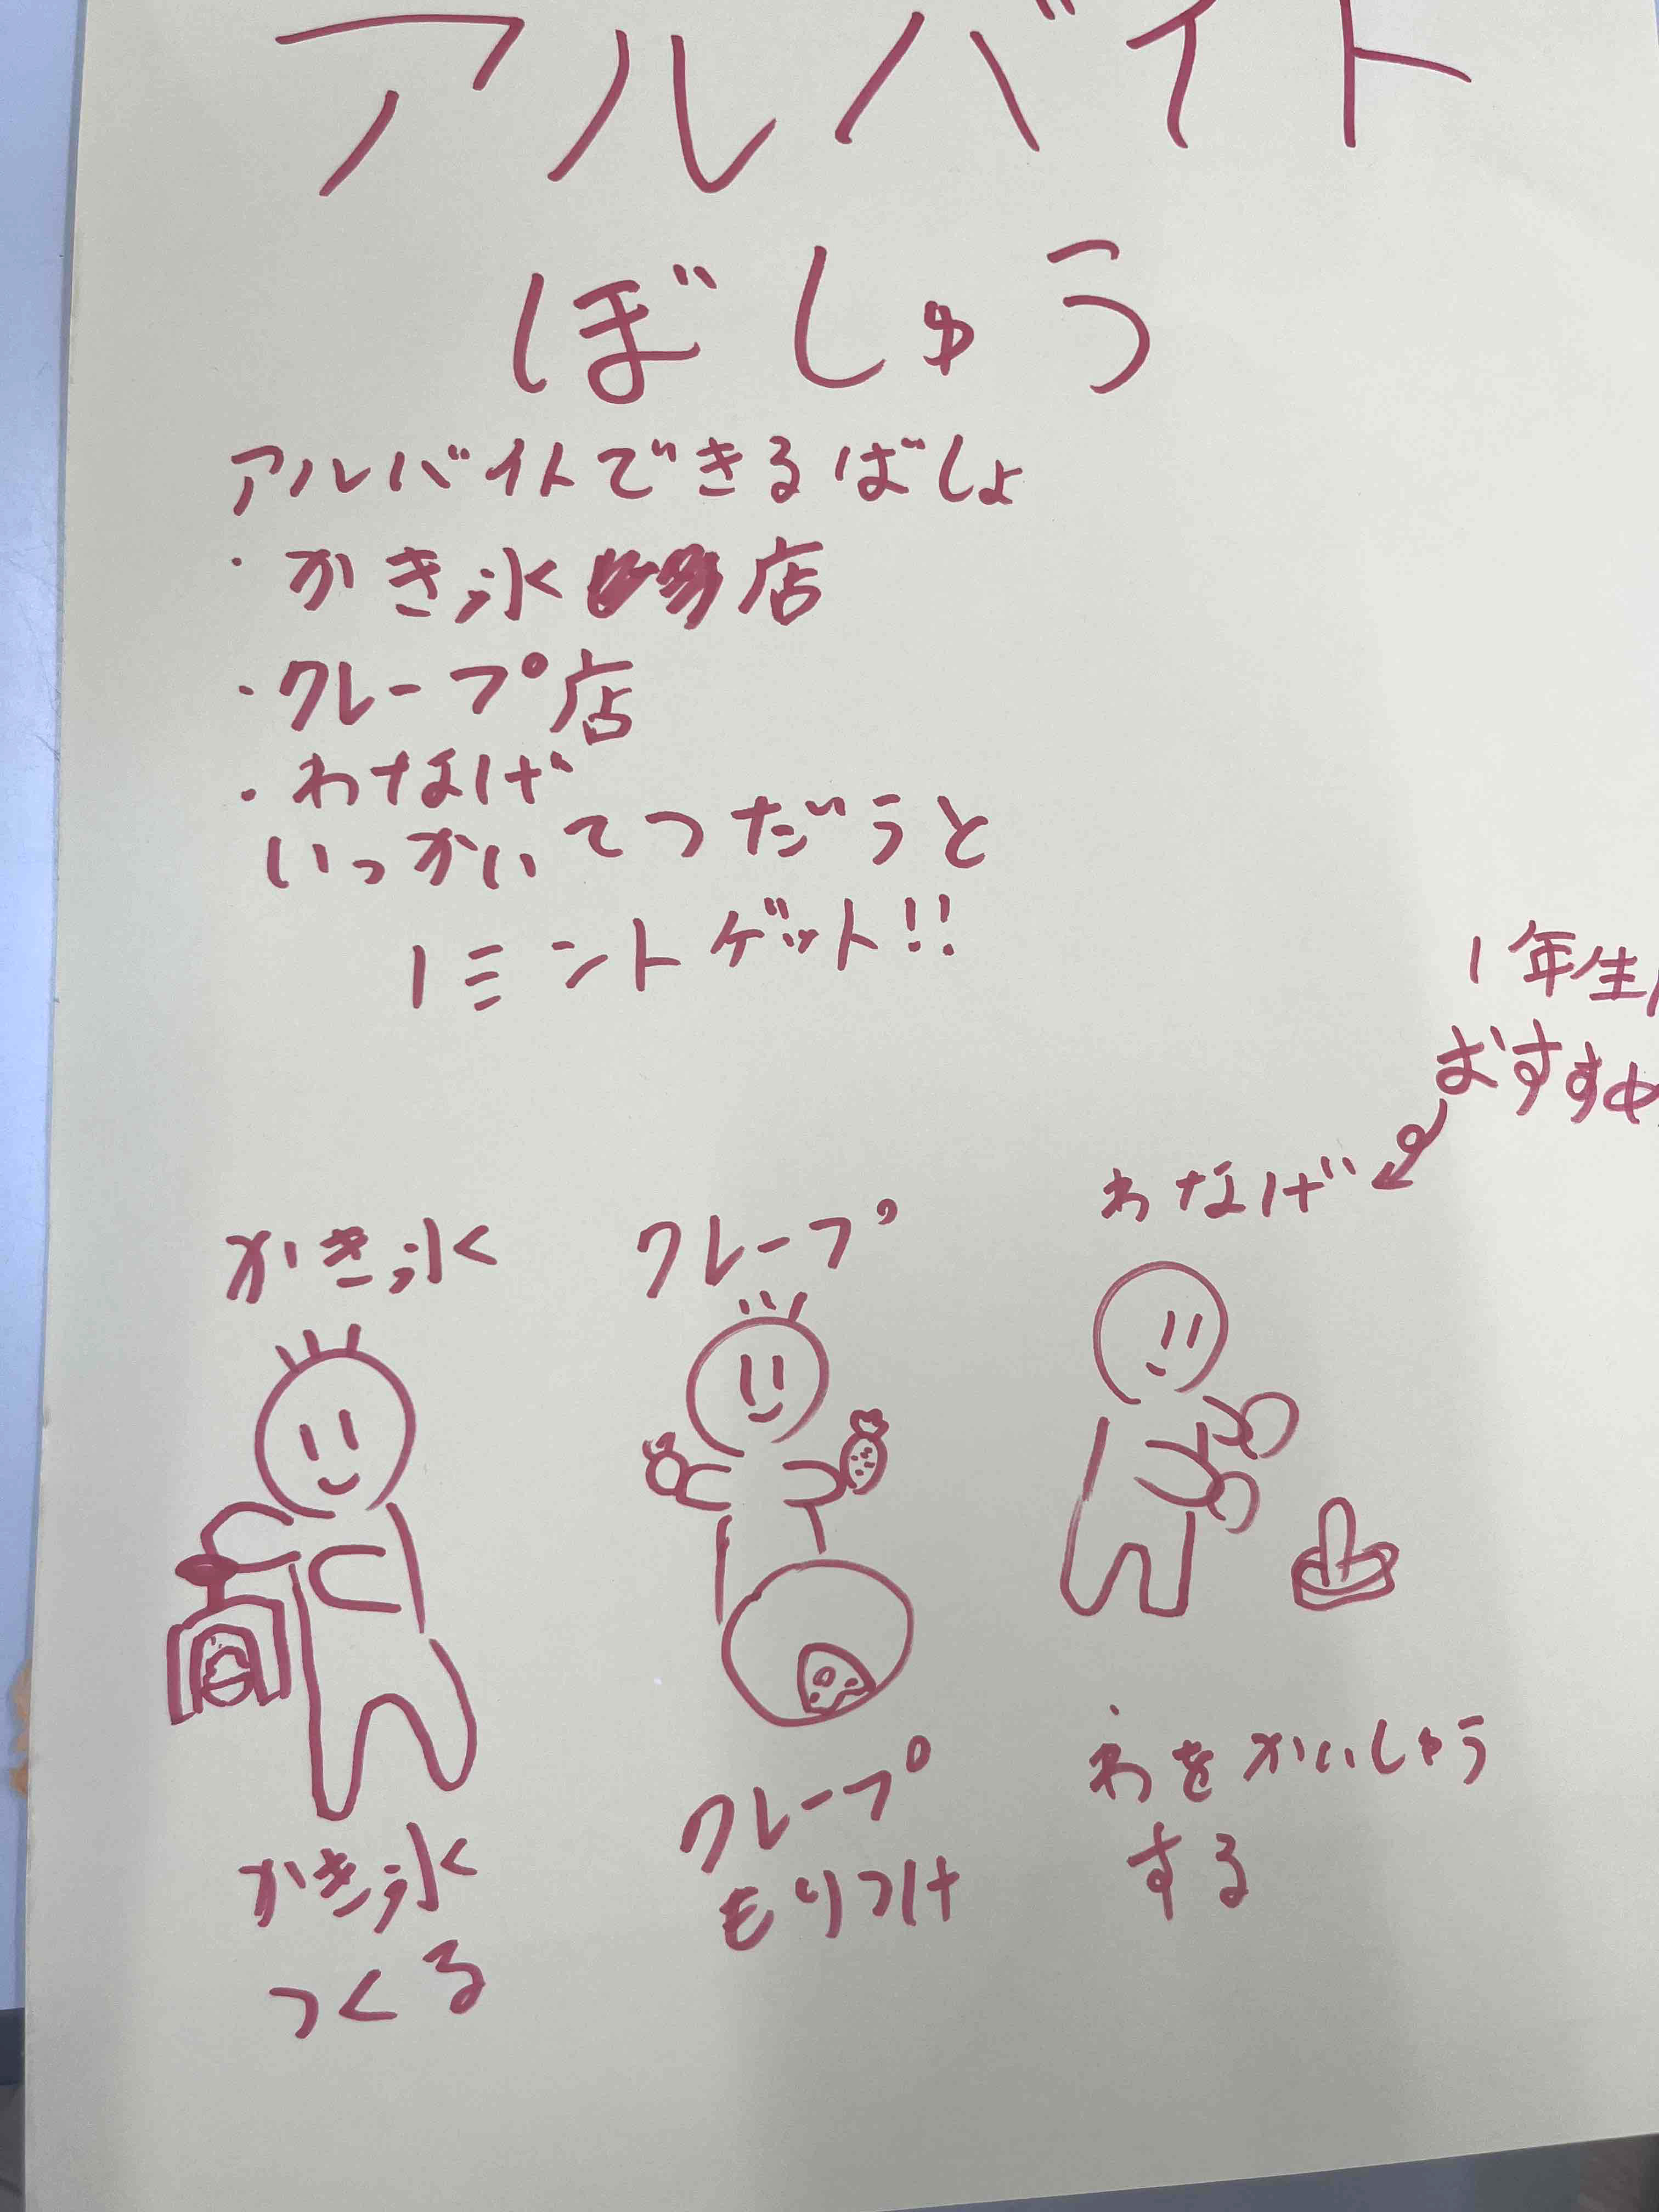 アルバイト
ぼしゅう
アルバイトできるばしょ
・かき氷店
・クレープ店
・わなげ
いっかいてつだうと
1ミントゲット!!
1年生
おすすめ
わなげ
クレープ
かき氷
かき氷
つくる
クレープ
もりつけ
わをかいしゅう
する